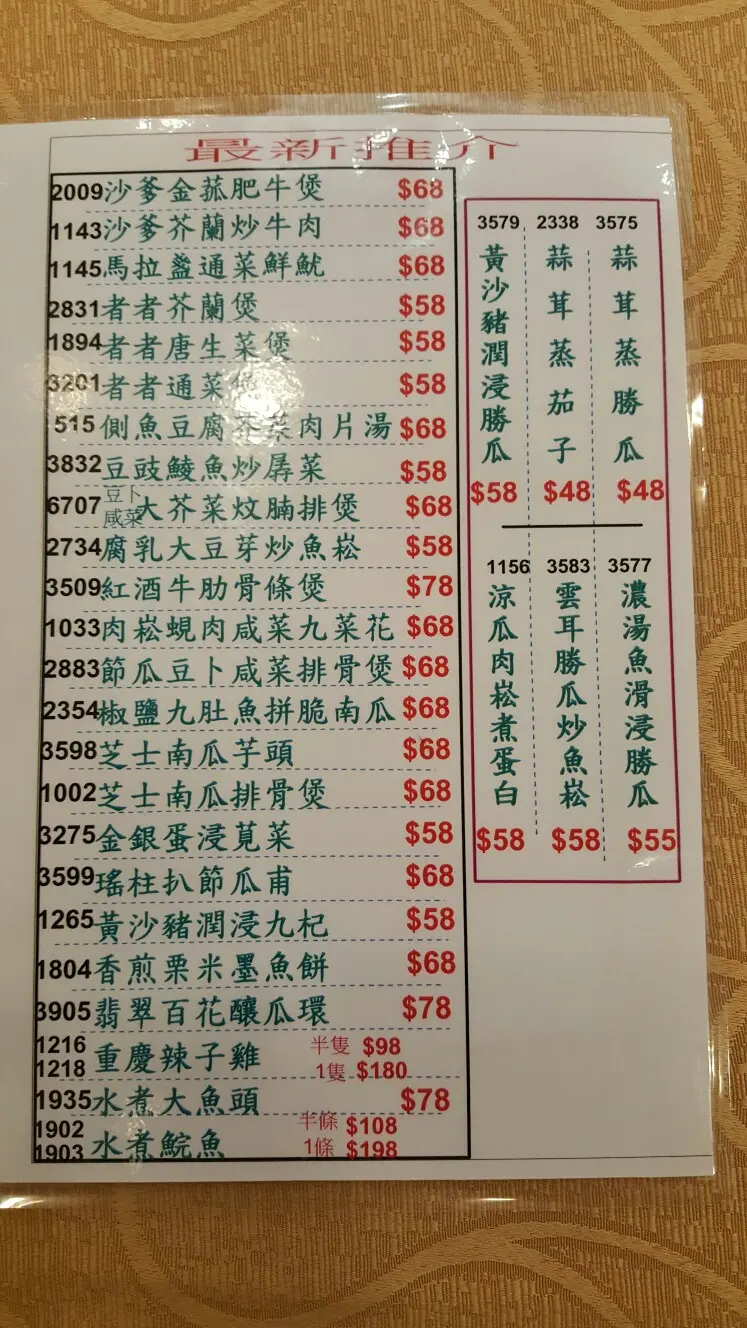 最新推介
2009沙爹金菰肥牛煲 $68
1143沙爹芥蘭炒牛肉 $68
1145馬拉盞通菜鮮魷 $68
2831者者芥蘭煲 $58
1894者者唐生菜煲 $58
3201者者通菜煲 $58
515側魚豆腐芥菜肉片湯 $68
3832豆豉鯪魚炒孱菜 $58
6707豆卜咸菜大芥菜炆腩排煲 $68
2734腐乳大豆芽炒魚崧 $58
3509紅酒牛肋骨條煲 $78
1033肉崧蜆肉咸菜九菜花 $68
2883節瓜豆卜咸菜排骨煲 $68
2354椒鹽九肚魚拼脆南瓜 $68
3598芝士南瓜芋頭 $68
1002芝士南瓜排骨煲 $68
3275金銀蛋浸莧菜 $58
3599瑤柱扒節瓜甫 $68
1265黃沙豬潤浸九杞 $58
1804香煎栗米墨魚餅 $68
3905翡翠百花釀瓜環 $78
1216 半隻 $98
1218 重慶辣子雞 1隻 $180
1935水煮大魚頭 $78
1902 半條 $108
1903 水煮鯇魚 1條 $198
3579 黃沙豬潤浸勝瓜 $58
2338 蒜茸蒸茄子 $48
3575 蒜茸蒸勝瓜 $48
1156 涼瓜肉崧煮蛋白 $58
3583 雲耳勝瓜炒魚崧 $58
3577 濃湯魚滑浸勝瓜 $55